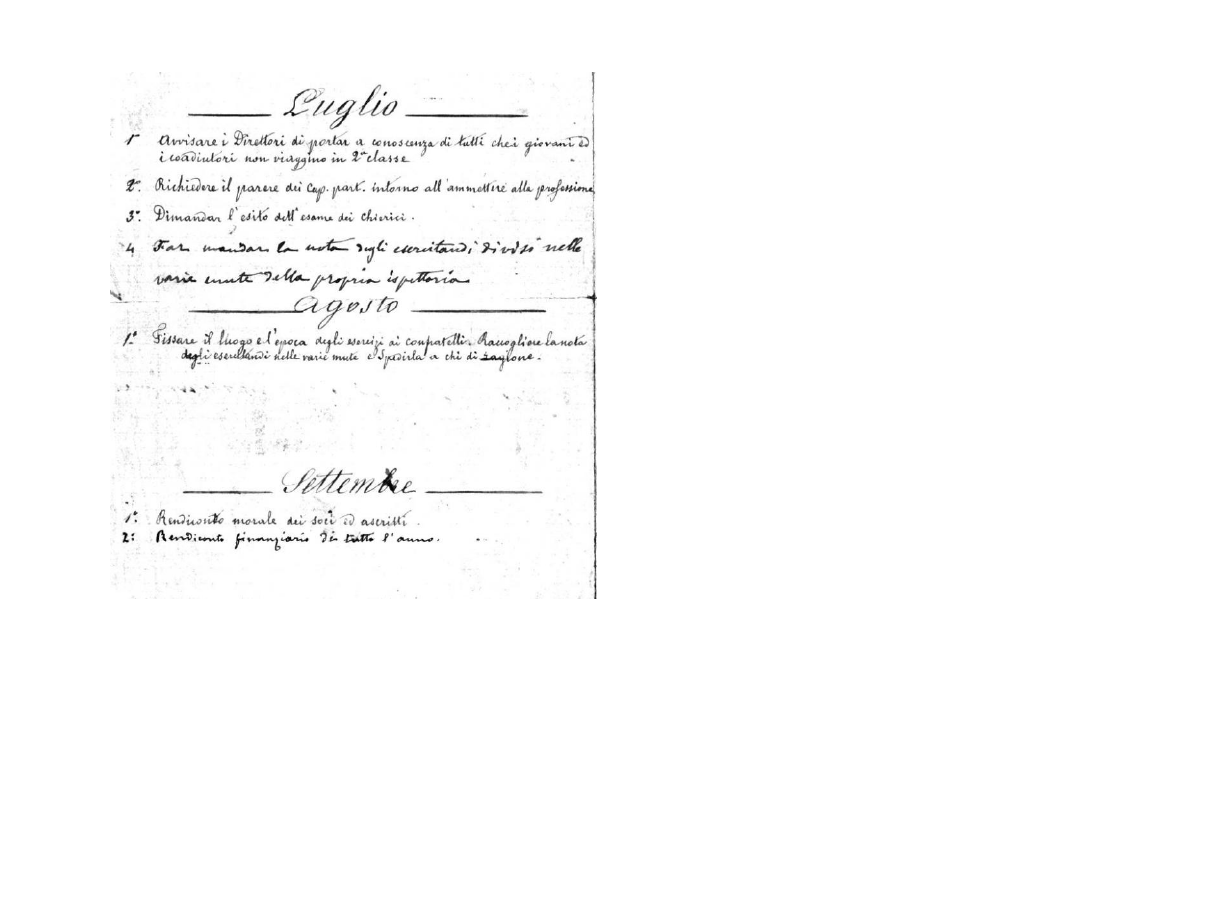 Luglio
1° Avvisare i Direttori di portar a conoscenza di tutti che i giovani ed
i coadiutori non viaggino in 2ª classe
2°. Richiedere il parere dei Cap. part. intorno all'ammettere alla professione
3°. Dimandar l'esito dell'esame dei chierici.
4 Far mandar la nota degli esercitandi divisi nelle
varie mute della propria ispettoria
Agosto
1.° Fissare il luogo e l'epoca degli esercizi ai confratelli. Raccogliere la nota
degli esercitandi nelle varie mute e spedirla a chi di ragione.
Settembre
1°. Rendiconto morale dei soci ed ascritti.
2: Rendiconto finanziario di tutto l'anno.